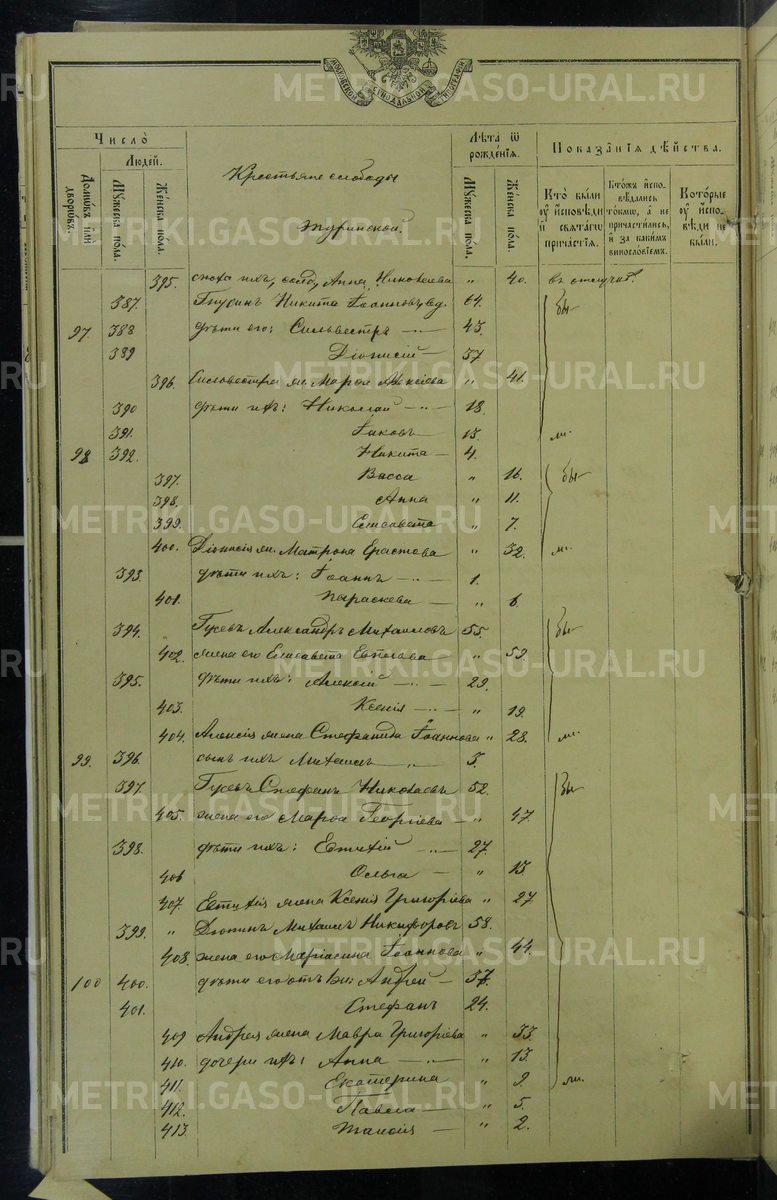 МОСКОВСКОЙ СѴНОДАЛЬНОЙ ТИПОГРАФІИ
METRIKI.GASO-URAL.RU METRIKI.GASO-URAL.RU
Число̀ Лѣта ѿ рожденїѧ. Показанїѧ дѣйства.
Людей.
Домѡвъ или дворѡвъ. Мꙋжеска по́ла. Же́нска по́ла. Мꙋжеска по́ла. Же́нска по́ла.
Кто̀ были ᲂу҆ и҆сповѣди и҆ свѧтагѡ причастїѧ. Кто́жъ и҆сповѣдались то́кмѡ, а҆ не причастились, и҆ за какимъ винословїемъ. Которые ᲂу҆ и҆сповѣди не были.
Крестьяне слободы
Туринской.
395. сноха ихъ, солд., Анна Николаева " 40. въ отлучкѣ.
387. Никита Іоанновъ вд. 64. бы
97. 388 дѣти его: Сильвестръ —"— 43.
389 Діонисій — 37
396. Сильвестра ж. Марѳа Алексіева " 41.
390 дѣти ихъ: Николай —"— 18.
391. Іаковъ 15. ли.
98 392. Никита — 4.
397. Васса " 16. бы
398. Анна " 11.
399. Елисавета " 7.
400. Діонисія ж. Матрона Ерастова " 32. ли.
393. дѣти ихъ: Іоаннъ —"— 1.
401. Параскева — " 6.
394. Гусевъ Александръ Михаиловъ 55. бы
402. жена его Елисавета " 53.
395. дѣти ихъ: Алексій —"— 29.
403. Ксенія —"— " 19.
404. Алексія жена Стефанида Іоаннова " 28. ли.
99. 396. сынъ ихъ Михаилъ " 3.
397. Гусевъ Стефанъ Николаевъ 52. бы
405. жена его Марѳа Георгіева — " 47.
398. дѣти ихъ: Евтихій —"— 27.
406 Ольга — " 15
407. Евтихія жена Ксенія Григоріева " 27
399. " Дютинъ Михаилъ Никифоровъ 58.
408. жена его Маріамна Іоаннова " 44.
100 400. дѣти его отъ Андрей — 37.
401. Стефанъ 24.
409 Андрея жена Мавра Григоріева " 33.
410. дочери ихъ: Анна —"— " 13.
411. Екатерина " 9. ли.
412. Павла — " 5.
413. Таисія — " 2.